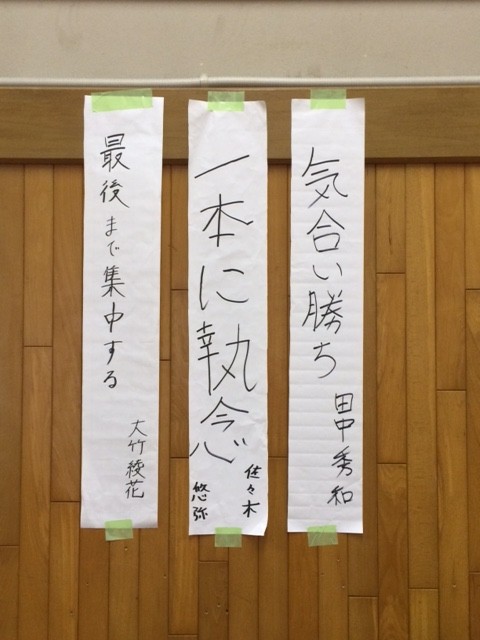 気合い勝ち
田中秀和
一本に執念
佐々木
悠弥
最後まで集中する
大竹綾花